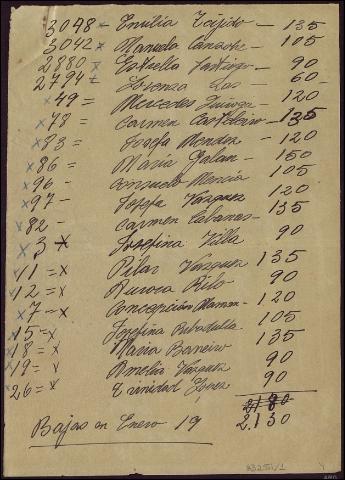 3048 - Emilia Tejido - 135
3042 x Manuela - 105
2880 x Estrella Santiago - 90
2794 + Lorenza Las - 60
x 49 = Mercedes - 120
x 78 = Carmen Casteleiro - 135
x 83 = Josefa Mendez - 120
x 86 = Maria Galan - 150
x 96 - Consuelo Mencia 105
x 97 - Josefa Vazquez 120
x 82 - Carmen Cabanas - 135
x 3 x Josefina Villa 90
x 11 = x Pilar Vazquez 135
x 12 = x Aurora Rilo 90
x 7 = x Concepción - 120
x 15 = x Josefina 105
x 18 = x Maria Barreiro 135
x 19 = x Amelia Vazquez 90
x 26 = x Trinidad 90
2180
Bajas en Enero 19 2.130